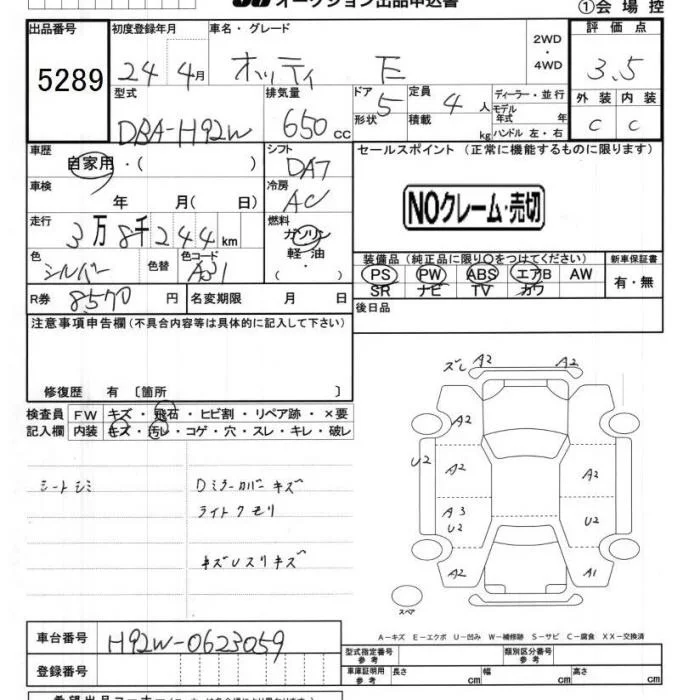 オークション出品申込書
①会場控
出品番号 初度登録年月 車名・グレード 評価点
5289 24年 4月 オッティ E 2WD・4WD 3.5
型式 排気量 ドア 定員 ディーラー・並行 外装 内装
DBA-H92W 650cc 5 4人 モデル年式 年 C C
形状 積載 kg ハンドル 左・右
車歴 シフト セールスポイント (正常に機能するものに限ります)
自家用・( ) DAT
車検 冷房
年 月( 日) AC
NOクレーム・売切
走行 燃料
3万8千244km ガソリン
軽油
( )
色 色替 色コード 装備品(純正品に限り○をつけてください) 新車保証書
シルバー A31 PS PW ABS エアB AW 有・無
SR ナビ TV カワ
R券 8570円 名変期限 月 日 後日品
注意事項申告欄(不具合内容等は具体的に記入して下さい)
修復歴 有 〔箇所 〕
検査員 FW キズ・飛石・ヒビ割・リペア跡・×要
記入欄 内装 キズ・汚レ・コゲ・穴・スレ・キレ・破レ
シートシミ Dミラーカバーキズ
ライトクモリ
キズUスリキズ
ズレ A2 A2
A2
U2 A2 A2
A3 U2 U2
A2 A1
スペア
A－キズ E－エクボ U－凹み W－補修跡 S－サビ C－腐食 XX－交換済
車台番号 H92W-0623059
登録番号
型式指定番号 参考 類別区分番号 参考
車庫証明用 参考 長さ cm 幅 cm 高さ cm
希望出品コーナー